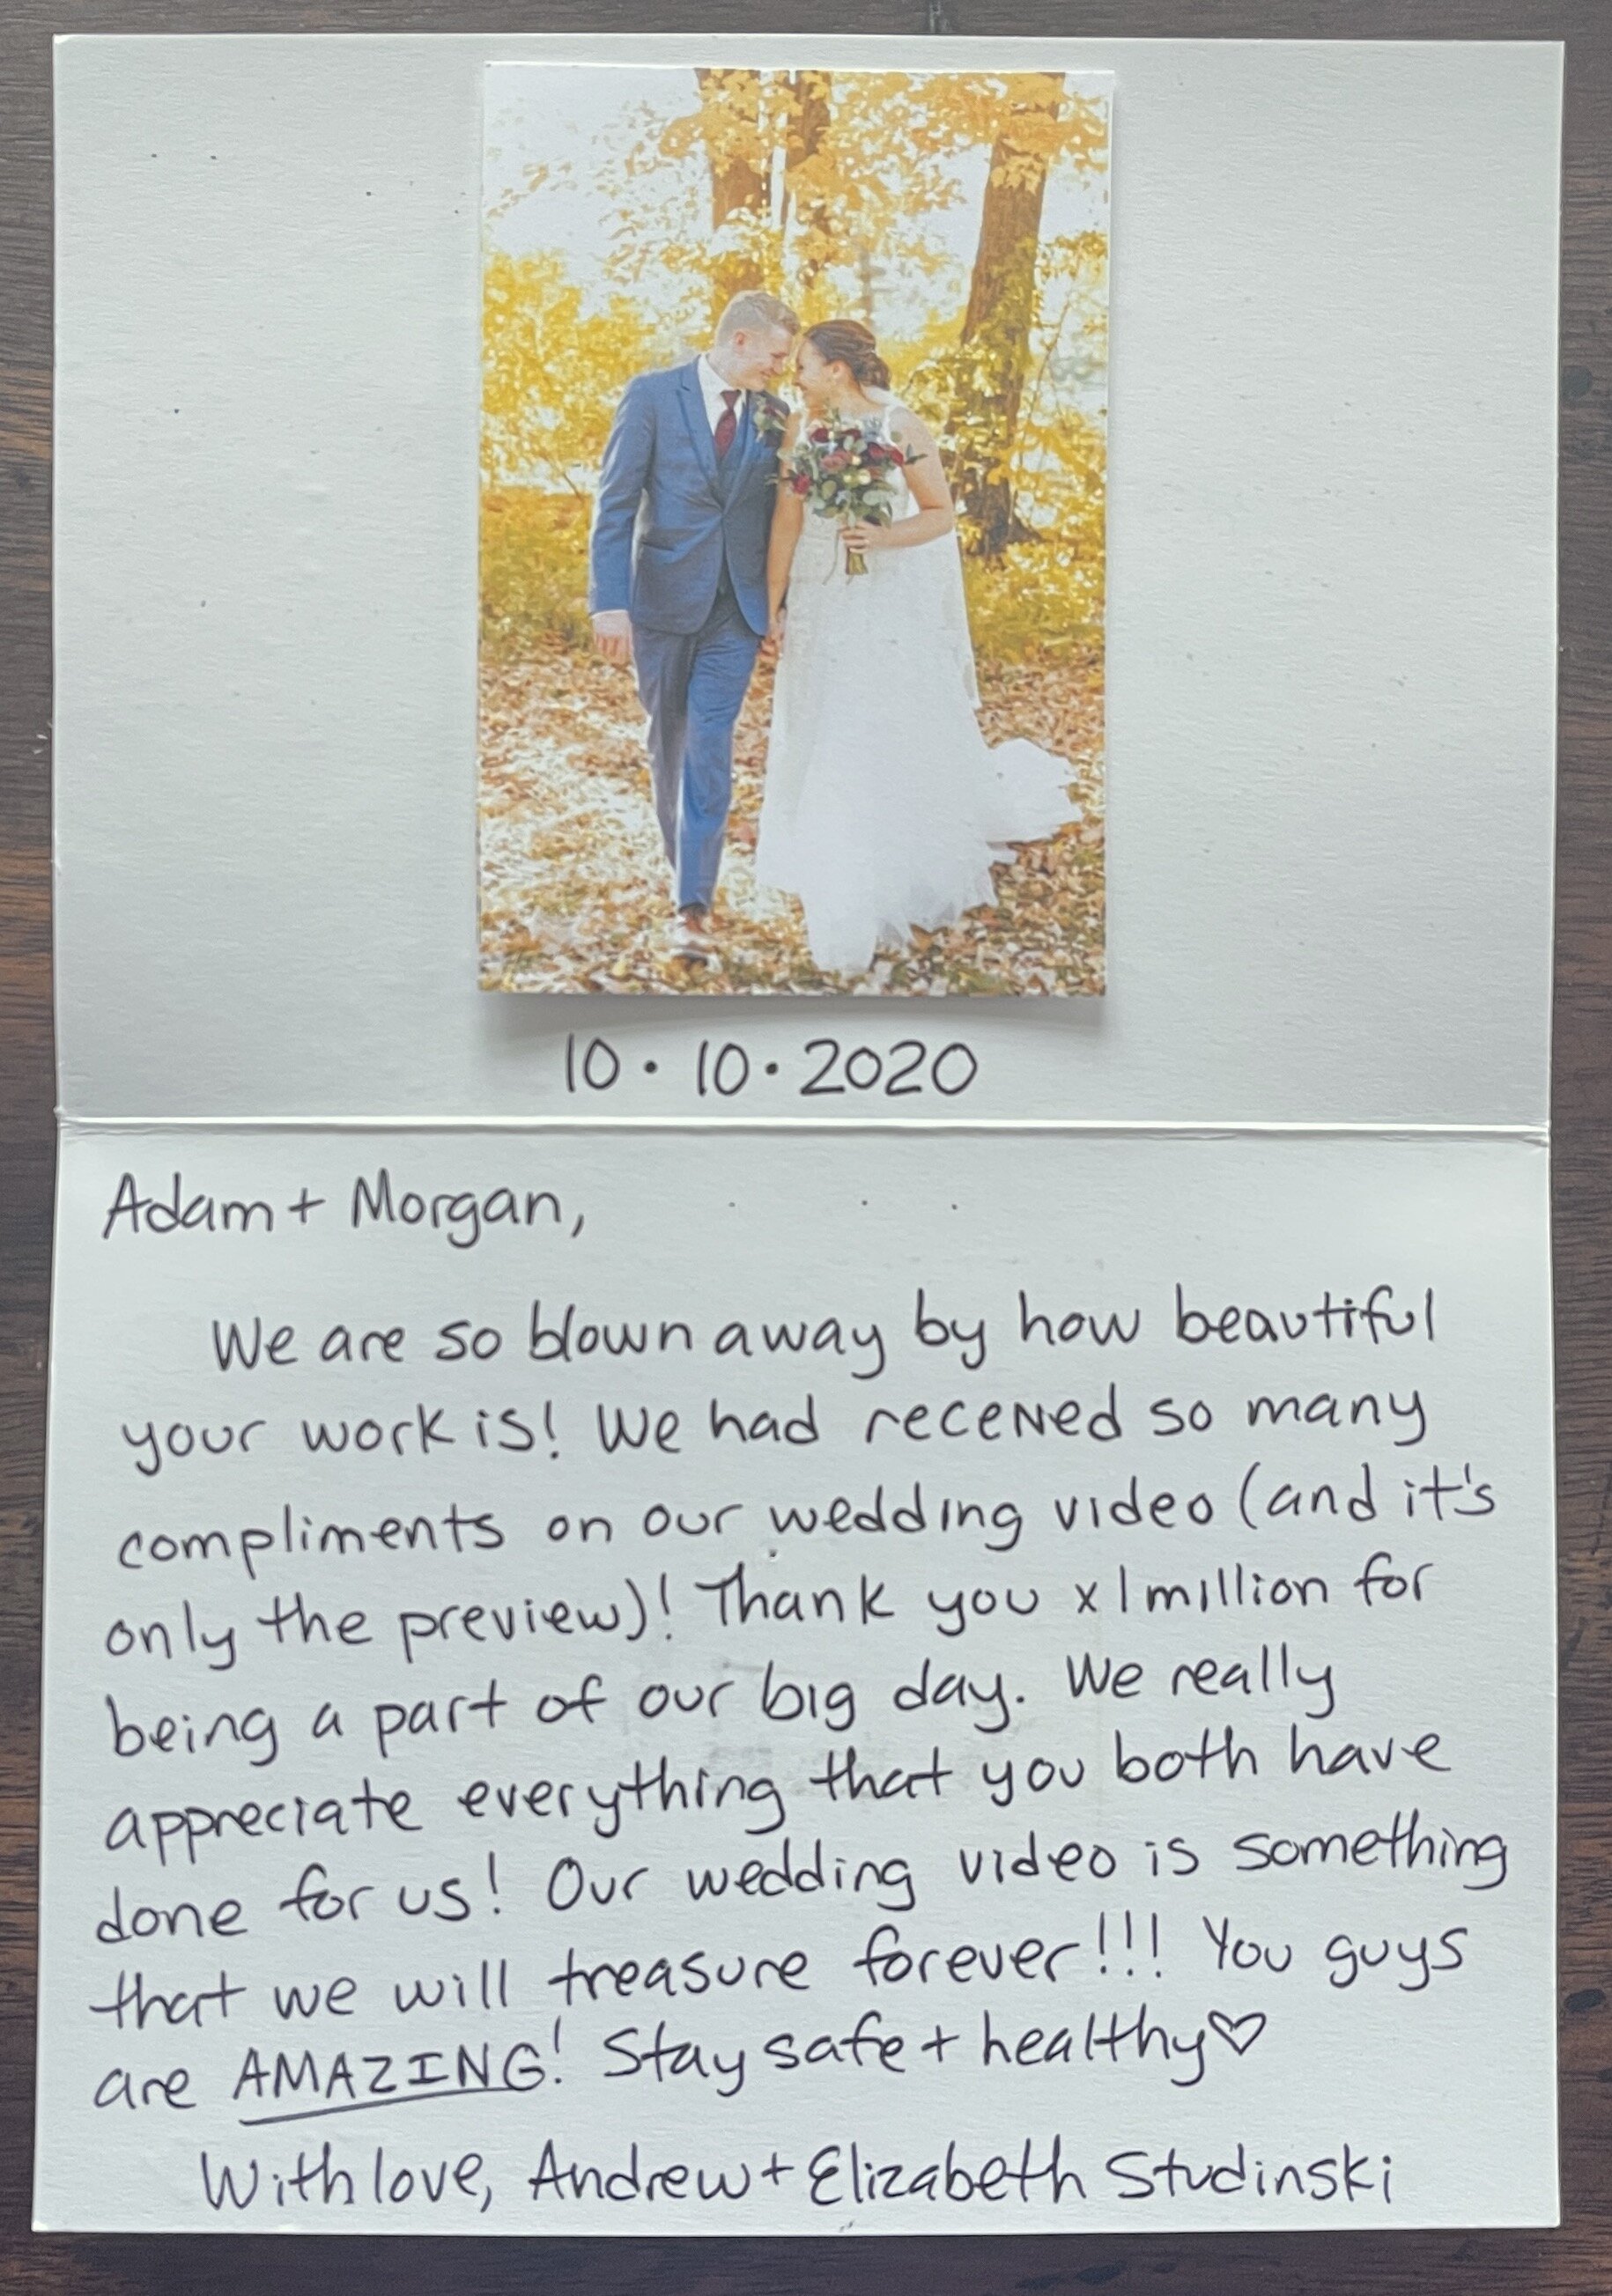 10 · 10 · 2020
Adam + Morgan,
We are so blown away by how beautiful
your work is! We had received so many
compliments on our wedding video (and it's
only the preview)! Thank you x 1 million for
being a part of our big day. We really
appreciate everything that you both have
done for us! Our wedding video is something
that we will treasure forever!!! You guys
are AMAZING! Stay safe + healthy♡
With love, Andrew + Elizabeth Studinski